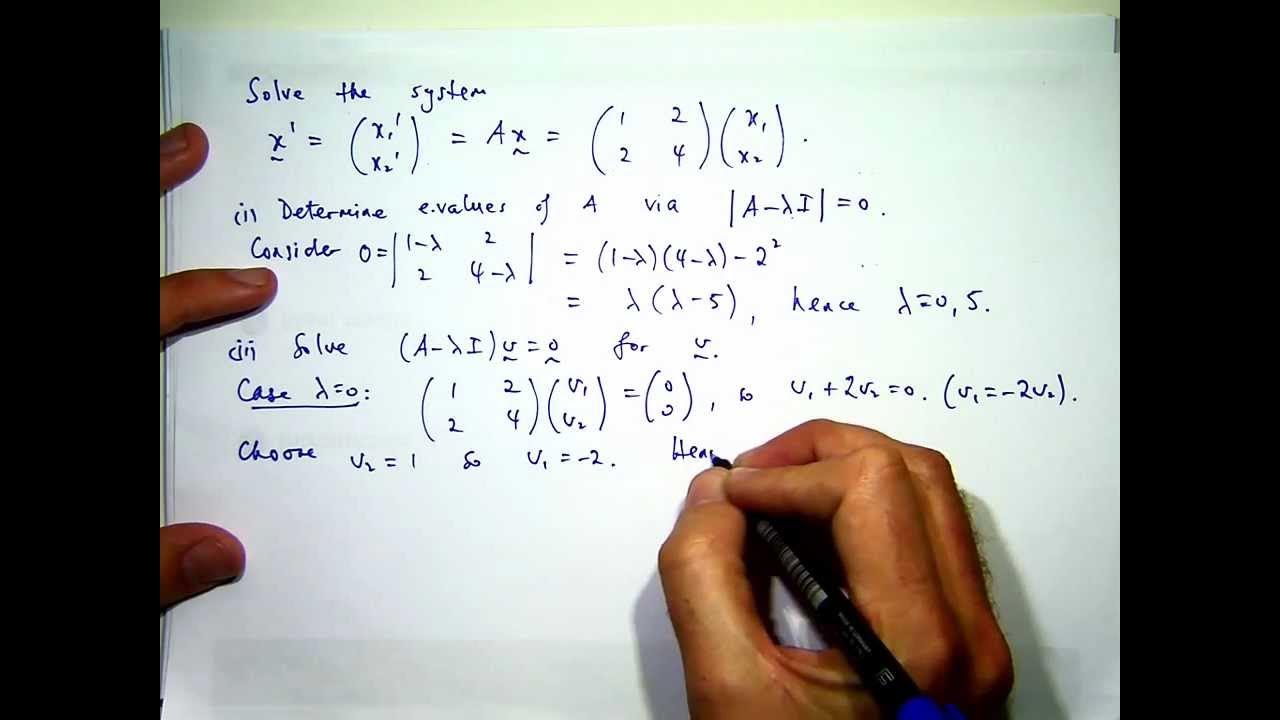 Solve the system
x' = (x₁' x₂') = Ax = (1 2 2 4)(x₁ x₂).
(i) Determine e.values of A via |A-λI| = 0.
Consider 0 = |1-λ 2 2 4-λ| = (1-λ)(4-λ) - 2²
= λ(λ-5), hence λ=0, 5.
(ii) Solve (A-λI)v = 0 for v.
Case λ=0: (1 2 2 4)(v₁ v₂) = (0 0), so v₁ + 2v₂ = 0. (v₁ = -2v₂).
Choose v₂ = 1 so v₁ = -2. Hen